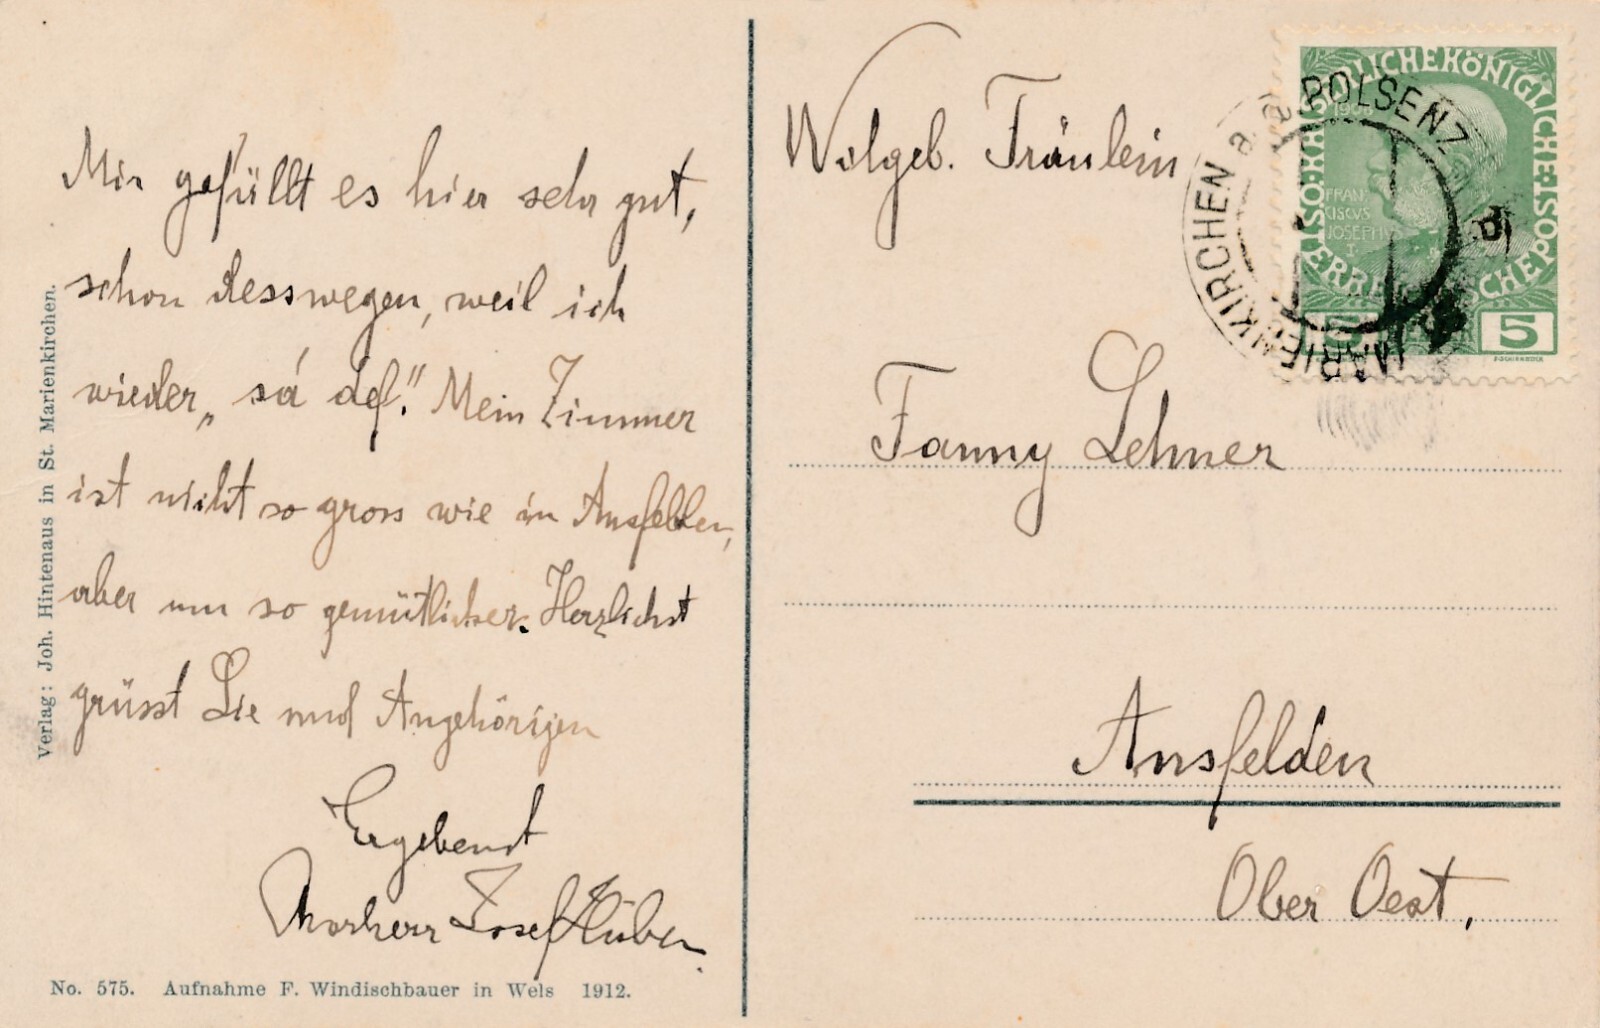 Mir gefällt es hier sehr gut,
schon desswegen, weil ich
wieder „ sá def." Mein Zimmer
ist nicht so gross wie in Ansfelden,
aber um so gemütlicher. Herzlichst
grüsst Sie und Angehörigen
Ergebenst
Josef Huber
Verlag: Joh. Hintenaus in St. Marienkirchen.
No. 575. Aufnahme F. Windischbauer in Wels 1912.
Wolgeb. Fräulein
Fanny Lehner
Ansfelden
Ober Oest.
MARIENKIRCHEN a. d. POLSENZ
KAISERLICHE KÖNIGLICHE
ÖSTERREICHISCHE POST
1908
FRAN
CISCVS
JOSEPH
I.
5 5